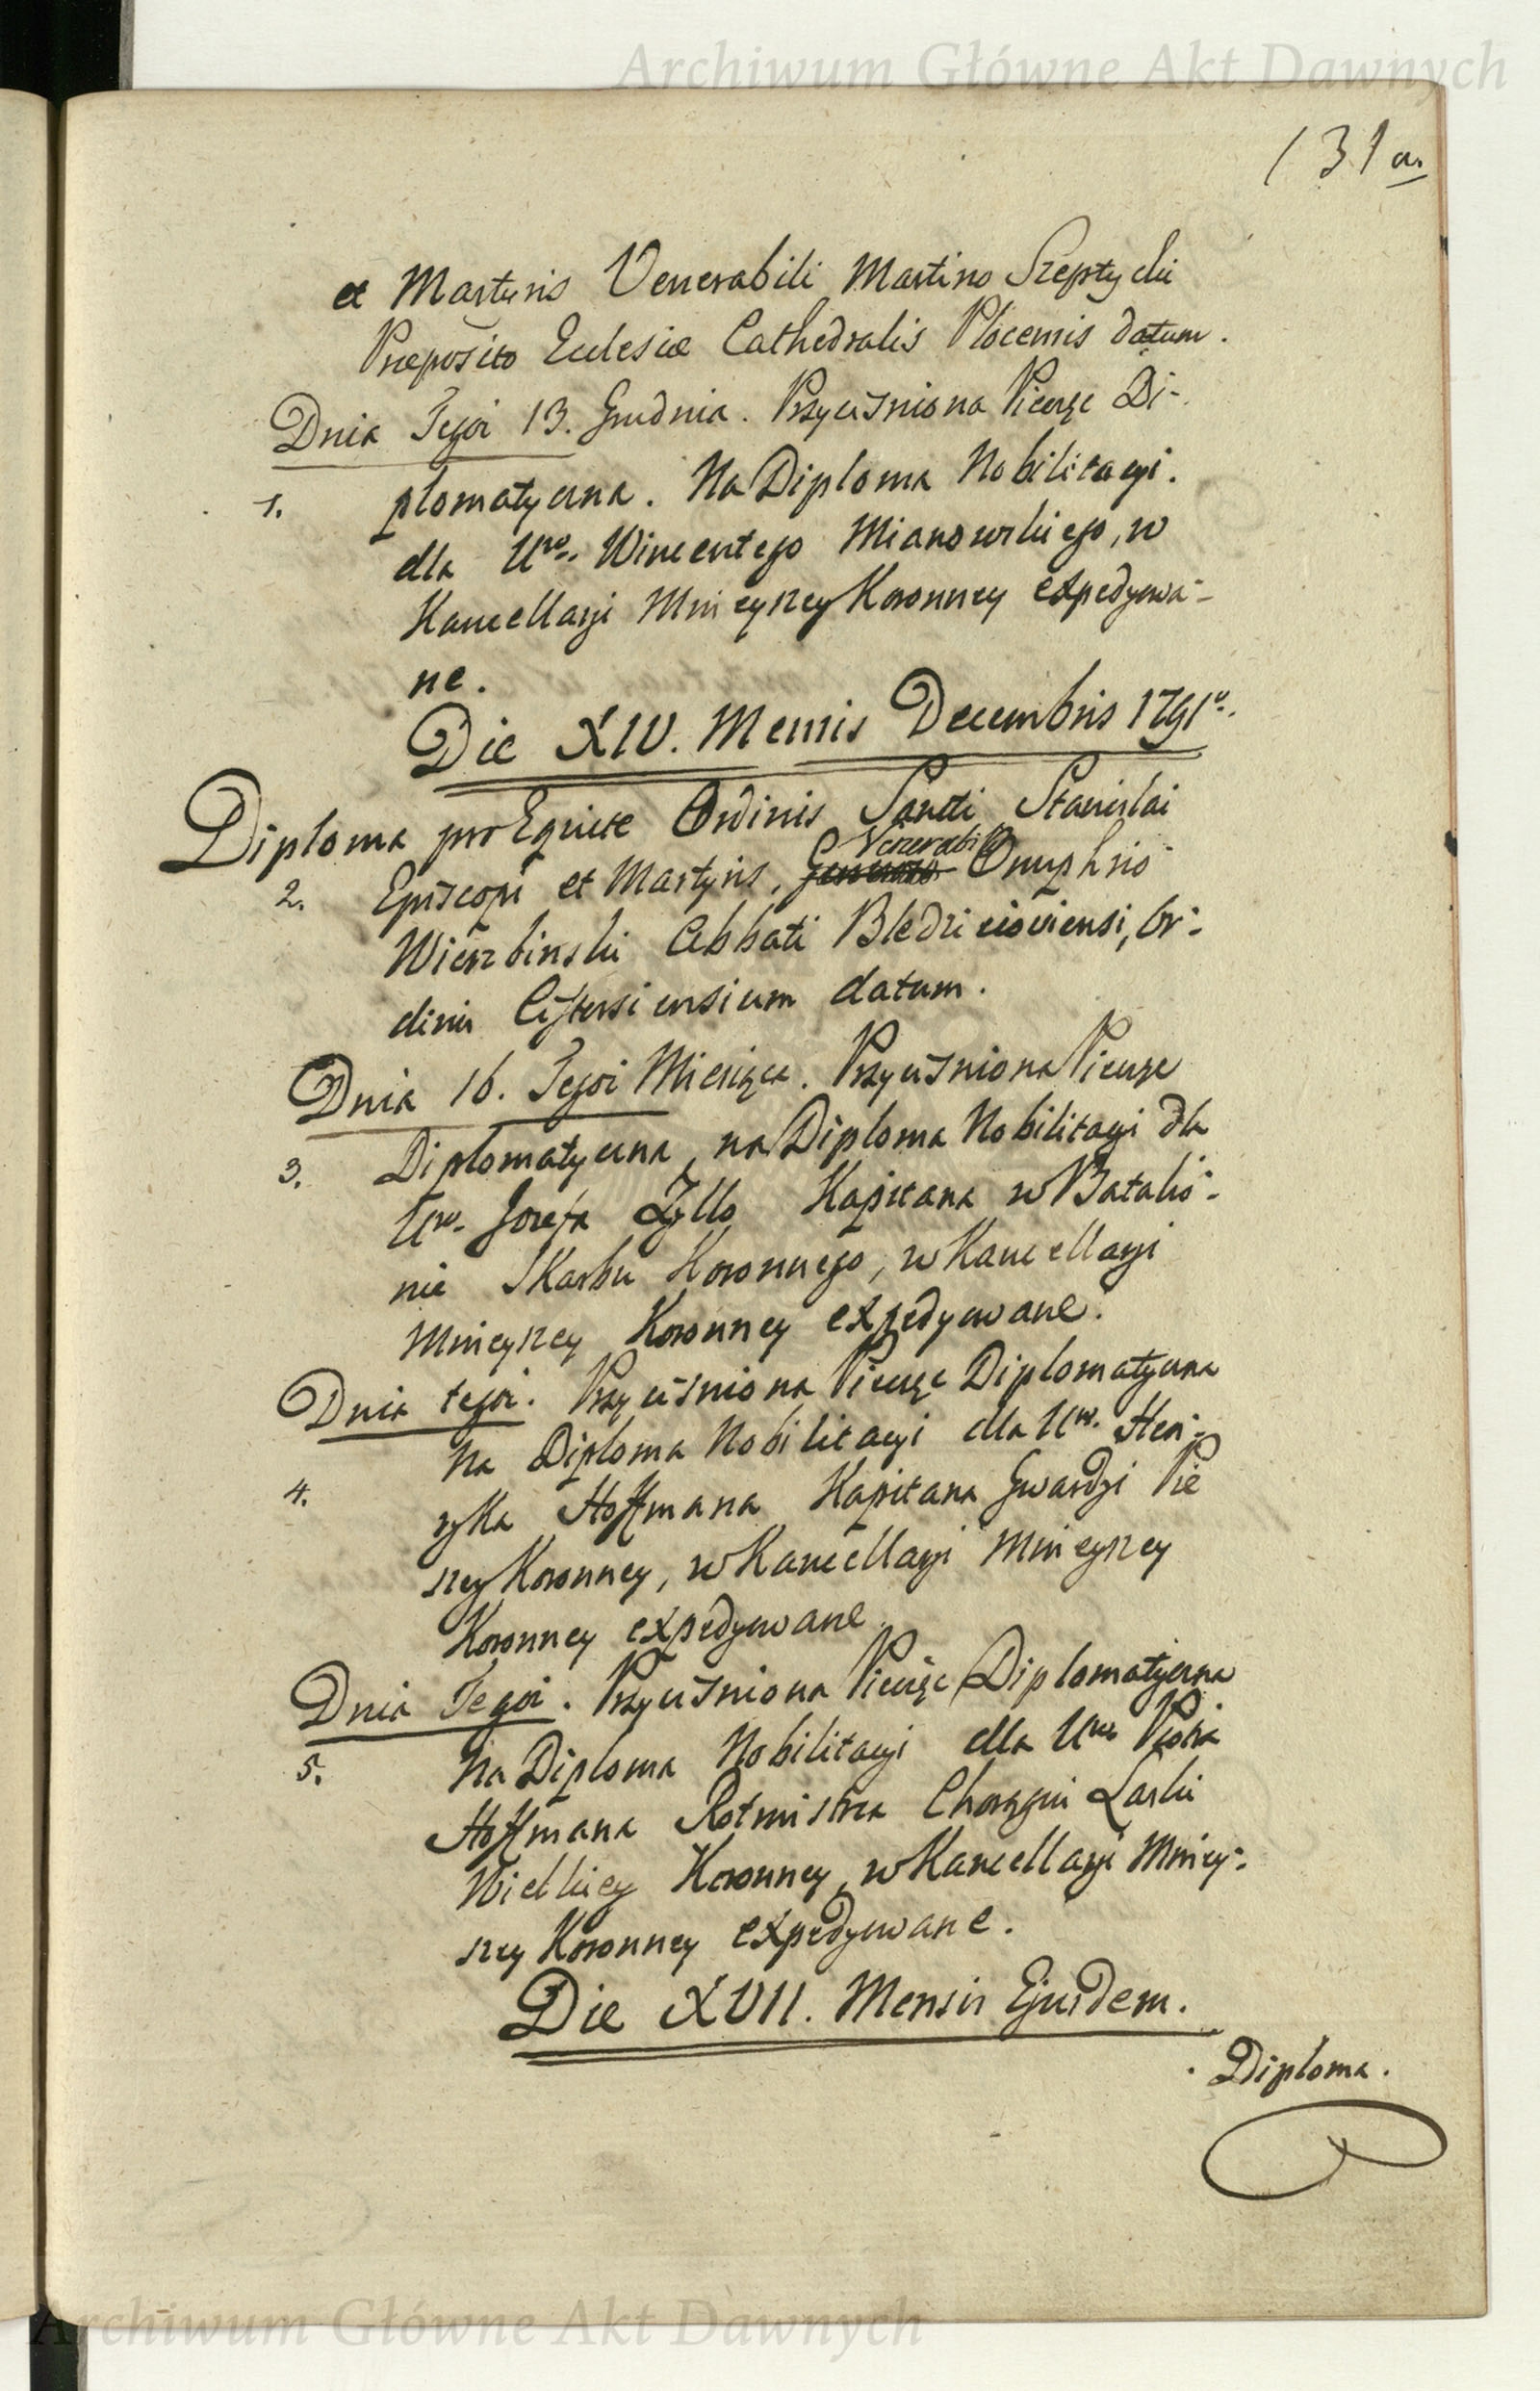 Archiwum Główne Akt Dawnych
131 a.
et Martyris Venerabili Martino Szeptycki
Præposito Eclesiæ Cathedralis Plocensis datum.
Dnia Tegoż 13. Grudnia. Przyciśniona Pieczęć Di-
1. plomatyczna. Na Diploma Nobilitacyi.
dla Uro. Wincentego Mianowskiego, w
Kancellaryi Mnieyszey Koronney expedyowa-
ne.
Die XIV. Mensis Decembris 1791o.
Diploma pro Equite Ordinis Sancti Stanislai
2. Episcopi et Martyris, Generoso Venerabili Onuphrio
Wierzbinski Abbati Bledzicioviensi, Or-
dinis Cistersiensium datum.
Dnia 16. Tegoż Miesiąca. Przyciśniona Pieczęć
3. Diplomatyczna, na Diploma Nobilitacyi dla
Uro. Jozefa Zyllo Kapitana w Batalio-
nie Skarbu Koronnego, w Kancellaryi
Mnieyszey Koronney expedyowane.
Dnia tegoż. Przyciśniona Pieczęć Diplomatyczna
Na Diploma Nobilitacyi dla Uro. Hen-
4. ryka Hoffmana Kapitana Gwardyi Pie
szey Koronney, w Kancellaryi Mnieyszey
Koronney expedyowane.
Dnia Tegoż. Przyciśniona Pieczęć Diplomatyczna
5. Na Diploma Nobilitacyi dla Uro. Piotra
Hoffmana Rotmistrza Chorągwi Laski
Wielkiey Koronney, w Kancellaryi Mniey-
szey Koronney expedyowane.
Die XVII. Mensis Ejusdem.
Diploma.
Archiwum Główne Akt Dawnych